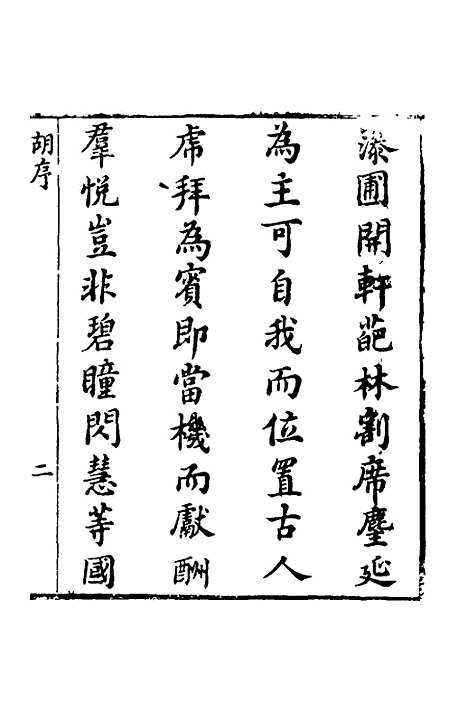 漆圃開軒葩林割席麈延
為主可自我而位置古人
席拜為賓即當機而獻酬
羣悅豈非碧瞳閃慧等國
胡序
二